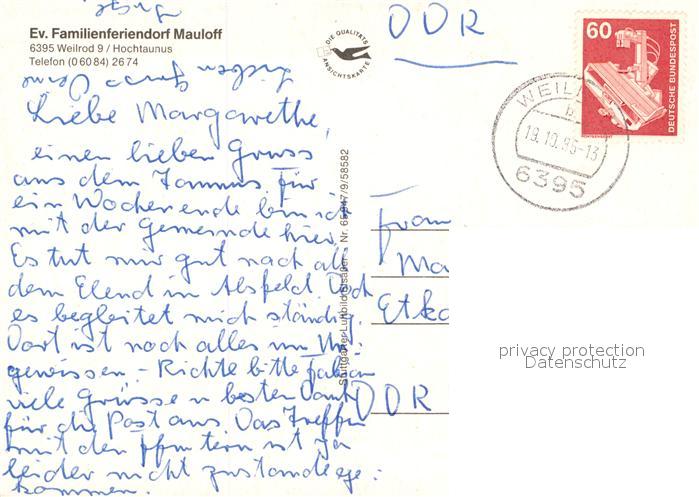 Ev. Familienferiendorf Mauloff
6395 Weilrod 9 / Hochtaunus
Telefon (0 60 84) 26 74
DIE QUALITÄTS
ANSICHTSKARTE
DDR
60
DEUTSCHE BUNDESPOST
WEIL
b
19.10.86-13
6395
Lieben Gruss
Liebe Margarethe,
einen lieben Gruss
aus dem Taunus. Für
ein Wochenende bin ich
mit der Gemeinde hier.
Es tut mir gut nach all
dem Elend in Alsfeld. Doch
es begleitet mich ständig.
Dort ist noch alles im Un-
gewissen - Richte bitte
viele Grüsse u besten Dank
für die Post aus. Das Treffen
mit den ist ja
leider nicht zustandege-
kommen.
Stuttgarter Luftbild Elsäßer Nr. 65947/9/58582
Frau
Ma
Etke
DDR
privacy protection
Datenschutz